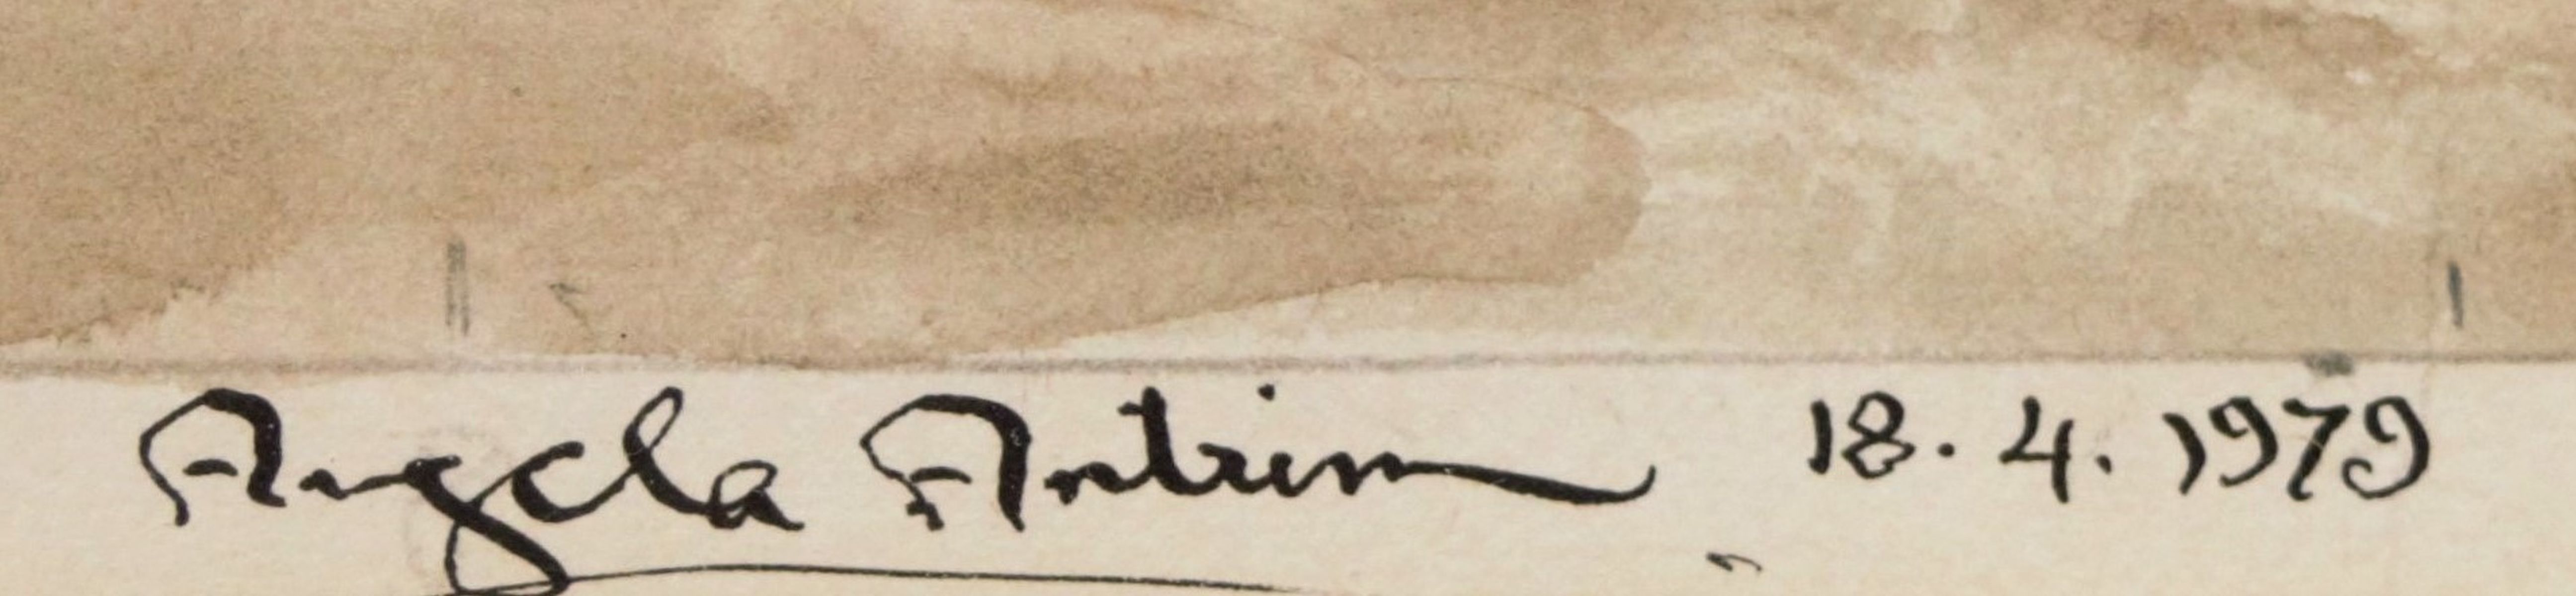 Angela Antrim 18.4.1979